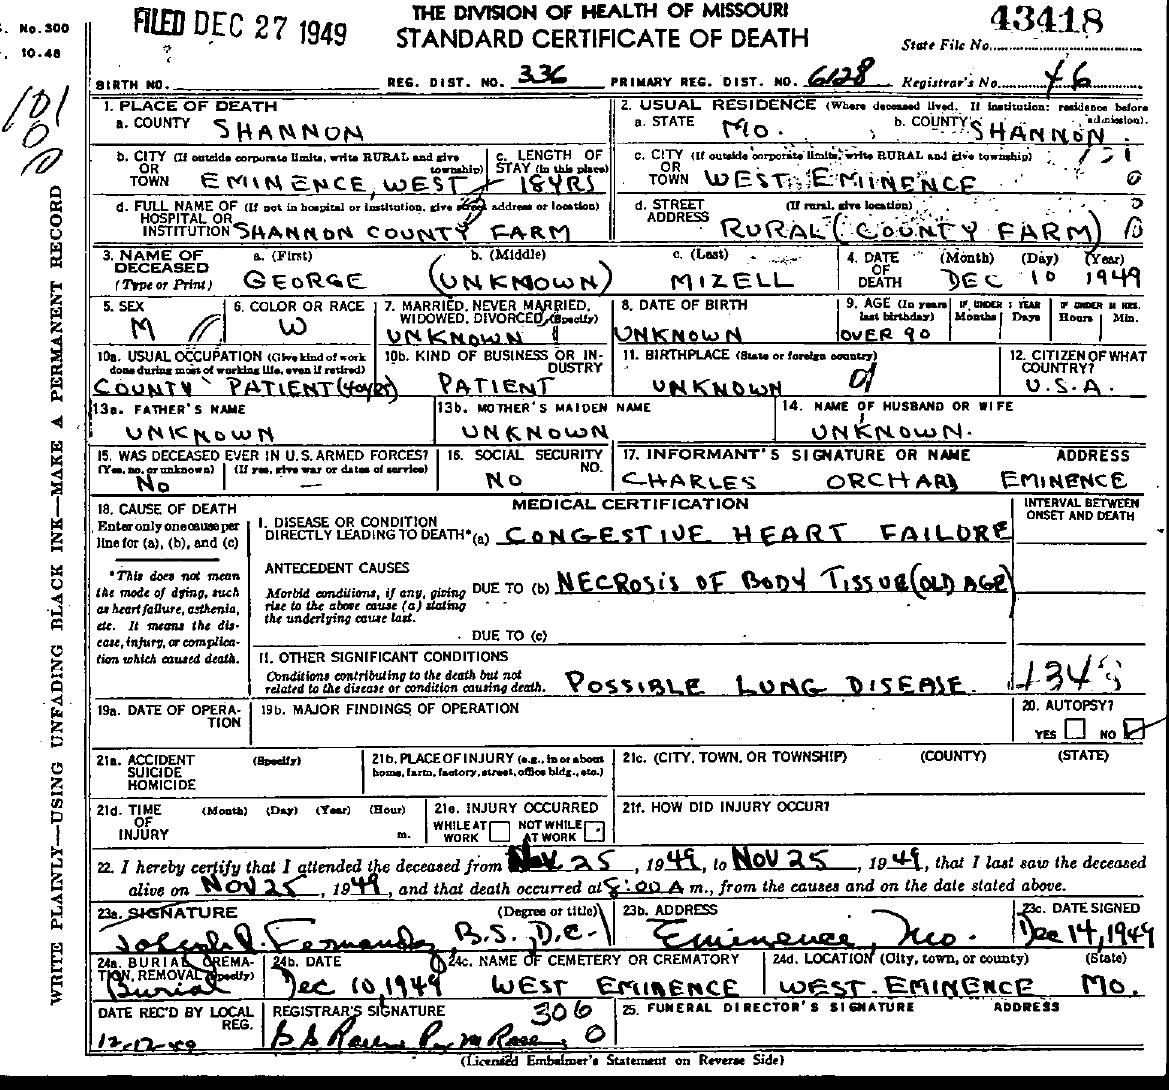 S. No. 300
. 10-48
FILED DEC 27 1949
THE DIVISION OF HEALTH OF MISSOURI
STANDARD CERTIFICATE OF DEATH
43418
State File No.
BIRTH NO. REG. DIST. NO. 336 PRIMARY REG. DIST. NO. 6128 Registrar's No. 46
101
0
WRITE PLAINLY—USING UNFADING BLACK INK—MAKE A PERMANENT RECORD
1. PLACE OF DEATH
a. COUNTY SHANNON
2. USUAL RESIDENCE (Where deceased lived. If institution: residence before admission).
a. STATE MO. b. COUNTY SHANNON
b. CITY (If outside corporate limits, write RURAL and give township)
OR
TOWN EMINENCE, WEST
c. LENGTH OF
STAY (in this place)
18YRS
c. CITY (If outside corporate limits, write RURAL and give township)
OR
TOWN WEST EMINENCE
0
d. FULL NAME OF (If not in hospital or institution, give street address or location)
HOSPITAL OR
INSTITUTION SHANNON COUNTY FARM
d. STREET (If rural, give location)
ADDRESS RURAL (COUNTY FARM)
3. NAME OF DECEASED
(Type or Print)
a. (First) b. (Middle) c. (Last)
GEORGE (UNKNOWN) MIZELL
4. DATE OF DEATH (Month) (Day) (Year)
DEC 10 1949
5. SEX
M
6. COLOR OR RACE
W
7. MARRIED, NEVER MARRIED,
WIDOWED, DIVORCED (Specify)
UNKNOWN
8. DATE OF BIRTH
UNKNOWN
9. AGE (In years last birthday) IF UNDER 1 YEAR Months Days IF UNDER 24 HRS. Hours Min.
OVER 90
10a. USUAL OCCUPATION (Give kind of work
done during most of working life, even if retired)
COUNTY PATIENT
10b. KIND OF BUSINESS OR INDUSTRY
PATIENT
11. BIRTHPLACE (State or foreign country)
UNKNOWN
12. CITIZEN OF WHAT
COUNTRY?
U.S.A.
13a. FATHER'S NAME
UNKNOWN
13b. MOTHER'S MAIDEN NAME
UNKNOWN
14. NAME OF HUSBAND OR WIFE
UNKNOWN.
15. WAS DECEASED EVER IN U.S. ARMED FORCES?
(Yes, no, or unknown) (If yes, give war or dates of service)
No —
16. SOCIAL SECURITY NO.
NO
17. INFORMANT'S SIGNATURE OR NAME ADDRESS
CHARLES ORCHARD EMINENCE
18. CAUSE OF DEATH
Enter only one cause per
line for (a), (b), and (c)
*This does not mean
the mode of dying, such
as heart failure, asthenia,
etc. It means the dis-
ease, injury, or complica-
tion which caused death.
MEDICAL CERTIFICATION
INTERVAL BETWEEN
ONSET AND DEATH
I. DISEASE OR CONDITION
DIRECTLY LEADING TO DEATH*(a) CONGESTIVE HEART FAILURE
ANTECEDENT CAUSES
Morbid conditions, if any, giving
rise to the above cause (a) stating
the underlying cause last.
DUE TO (b) NECROSIS OF BODY TISSUE (OLD AGE)
DUE TO (c)
II. OTHER SIGNIFICANT CONDITIONS
Conditions contributing to the death but not
related to the disease or condition causing death.
POSSIBLE LUNG DISEASE.
19a. DATE OF OPERA-
TION
19b. MAJOR FINDINGS OF OPERATION
20. AUTOPSY?
YES NO
21a. ACCIDENT (Specify)
SUICIDE
HOMICIDE
21b. PLACE OF INJURY (e.g., in or about
home, farm, factory, street, office bldg., etc.)
21c. (CITY, TOWN, OR TOWNSHIP) (COUNTY) (STATE)
21d. TIME (Month) (Day) (Year) (Hour)
OF
INJURY m.
21e. INJURY OCCURRED
WHILE AT WORK NOT WHILE AT WORK
21f. HOW DID INJURY OCCUR?
22. I hereby certify that I attended the deceased from Nov 25, 1949, to Nov 25, 1949, that I last saw the deceased
alive on Nov 25, 1949, and that death occurred at 8:00 A m., from the causes and on the date stated above.
23a. SIGNATURE (Degree or title)
Joseph Fernandez B.S., D.C.
23b. ADDRESS
Eminence, Mo.
23c. DATE SIGNED
Dec 14, 1949
24a. BURIAL, CREMA-
TION, REMOVAL (Specify)
Burial
24b. DATE
Dec 10, 1949
24c. NAME OF CEMETERY OR CREMATORY
WEST EMINENCE
24d. LOCATION (City, town, or county) (State)
WEST EMINENCE MO.
DATE REC'D BY LOCAL
REG.
12-12-49
REGISTRAR'S SIGNATURE
306
0
25. FUNERAL DIRECTOR'S SIGNATURE ADDRESS
(Licensed Embalmer's Statement on Reverse Side)